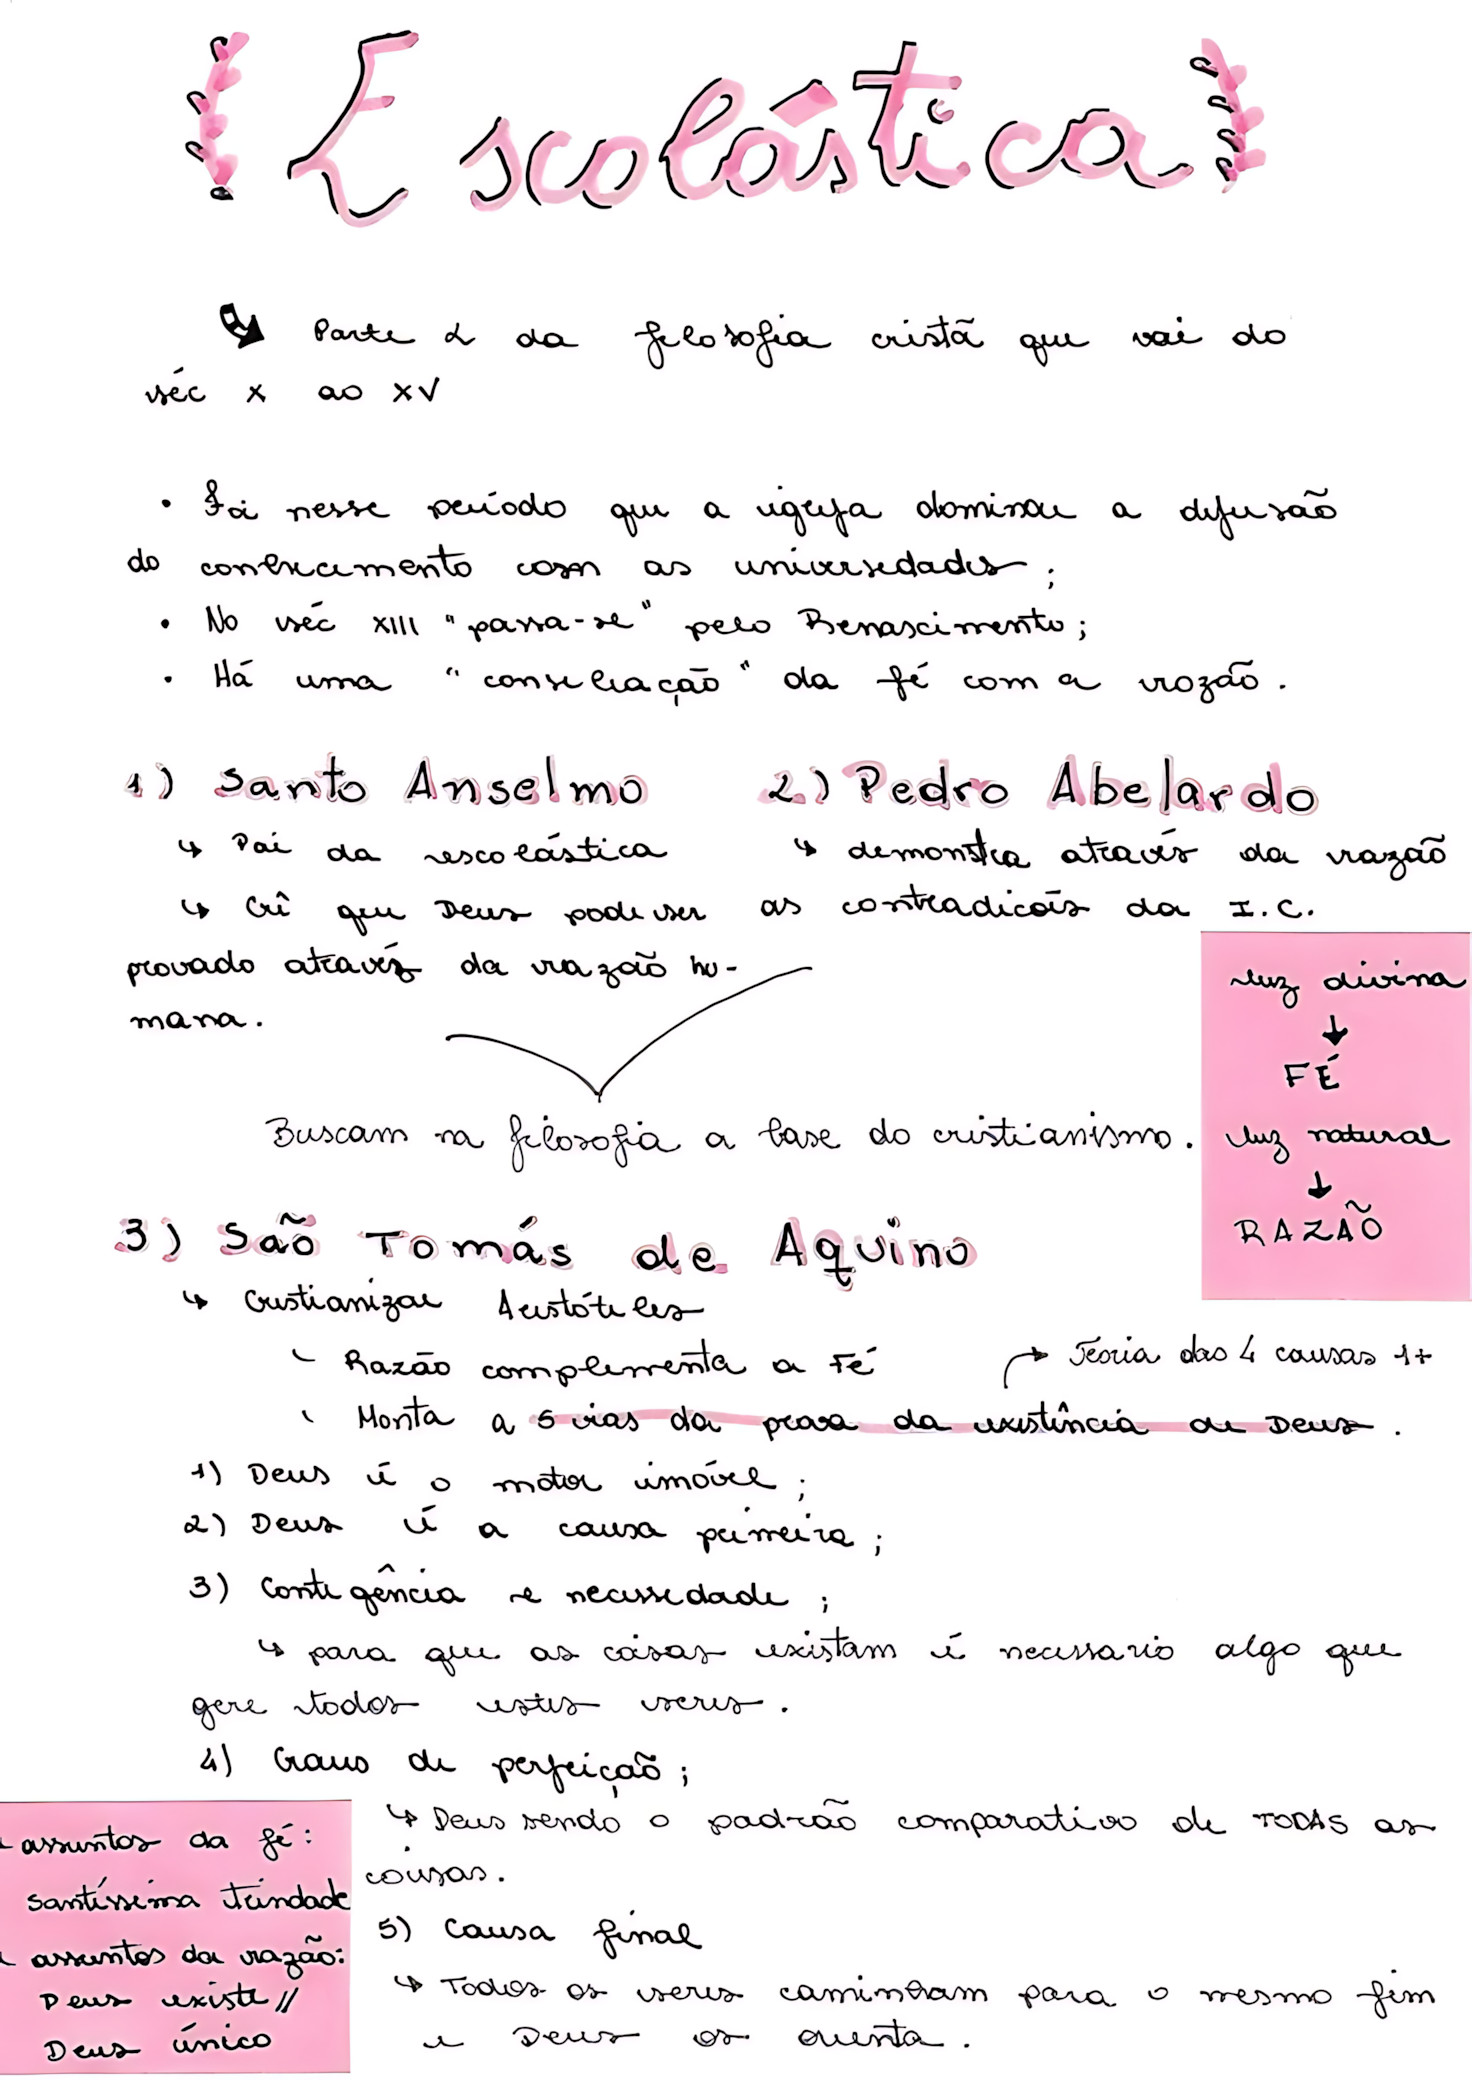 Escolástica
Parte 2 da filosofia cristã que vai do
séc X ao XV
• Foi nesse período que a igreja dominou a difusão
do conhecimento com as universidades;
• No séc XIII "passa-se" pelo Renascimento;
• Há uma "conciliação" da fé com a razão.
1) Santo Anselmo
↳ Pai da escolástica
↳ Crê que Deus pode ser
provado através da razão hu-
mana.
2) Pedro Abelardo
↳ demonstra através da razão
as contradições da I.C.
Buscam na filosofia a base do cristianismo.
luz divina
↓
FÉ
luz natural
↓
RAZÃO
3) São Tomás de Aquino
↳ Cristianizar Aristóteles
- Razão complementa a Fé
Teoria das 4 causas 1+
- Monta a 5 vias da prova da existência de Deus.
1) Deus é o motor imóvel;
2) Deus é a causa primeira;
3) Contigência e necessidade;
↳ para que as coisas existam é necessario algo que
gere todos estes seres.
4) Graus de perfeição;
↳ Deus sendo o padrão comparativo de TODAS as
coisas.
5) Causa final
↳ Todos os seres caminham para o mesmo fim
e Deus os orienta.
assuntos da fé:
santíssima trindade
assuntos da razão:
Deus existe //
Deus único